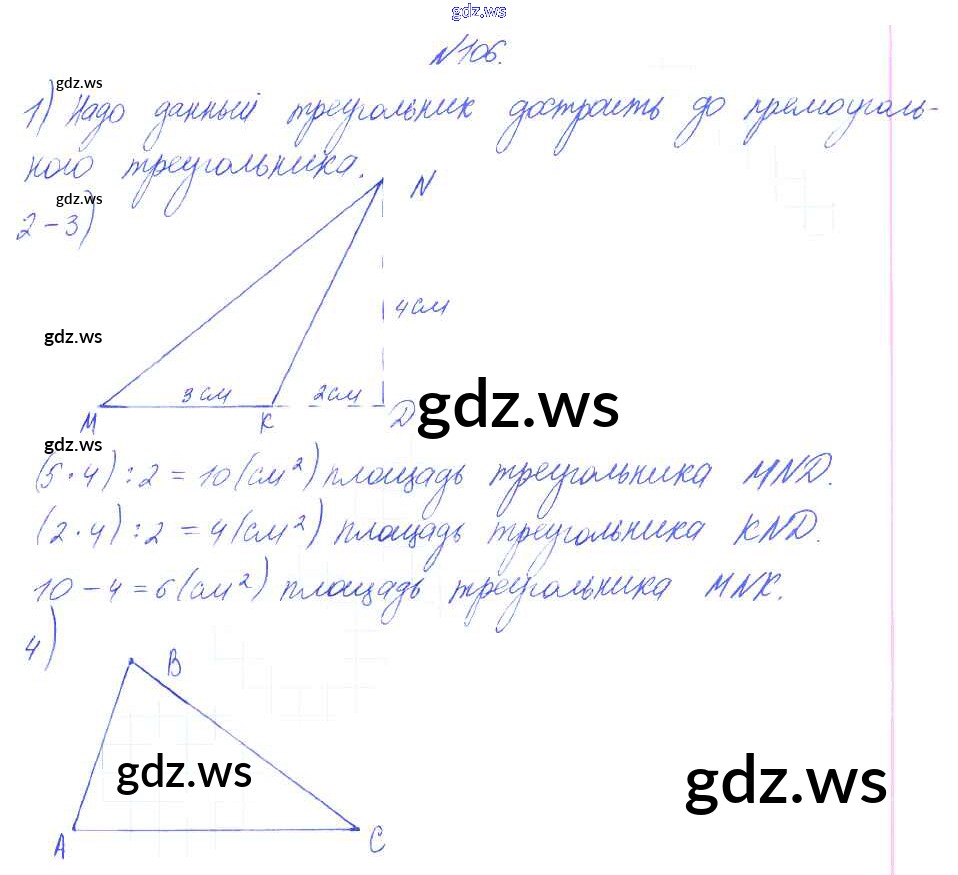 gdz.ws
№106.
gdz.ws
1) Надо данный треугольник достроить до прямоуголь-
ного треугольника.
gdz.ws
2-3)
N
4 см
gdz.ws
3 см 2 см
M K D
gdz.ws
gdz.ws
(5·4):2=10(см²) площадь треугольника MND.
(2·4):2=4(см²) площадь треугольника KND.
10-4=6(см²) площадь треугольника MNK.
4)
B
gdz.ws
gdz.ws
A C